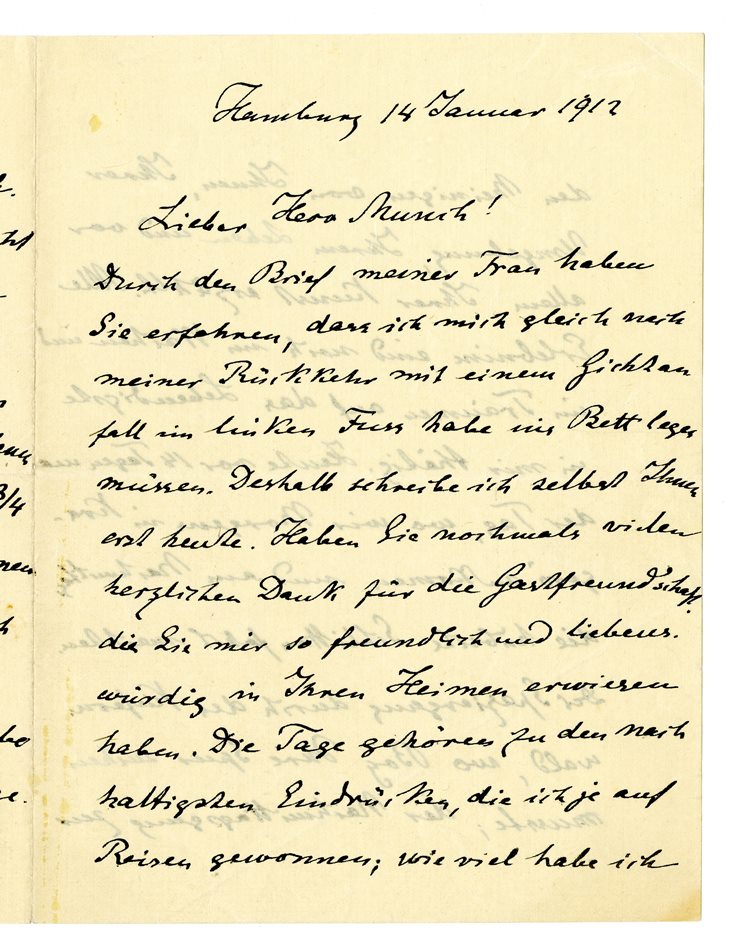 Hamburg 14 Januar 1912
Lieber Herr Munch!
Durch den Brief meiner Frau haben
Sie erfahren, dass ich mich gleich nach
meiner Rückkehr mit einem Gichtan
fall im linken Fuss habe ins Bett legen
müssen. Deshalb schreibe ich selbst Ihnen
erst heute. Haben Sie nochmals vielen
herzlichen Dank für die Gastfreundschaft
die Sie mir so freundlich und liebens.
würdig in Ihren Heimen erwiesen
haben. Die Tage gehören zu den nach
haltigsten Eindrücken, die ich je auf
Reisen gewonnen; wie viel habe ich
3/4